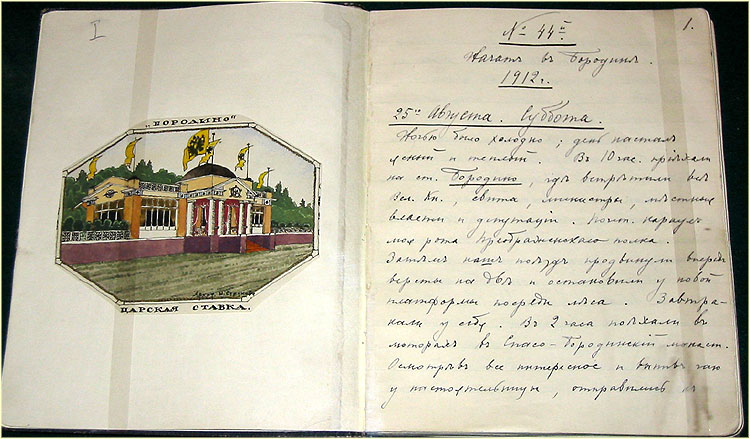 I
„БОРОДИНО"
ЦАРСКАЯ СТАВКА.
1.
№ 44й
Начатъ въ Бородинѣ.
1912 г.
25го Августа. Суббота.
Ночью было холодно, день насталъ
ясный и теплый. Въ 10 час. пріѣхали
на ст. Бородино, гдѣ встрѣтили всѣ
Вел. Кн., свита, министры, мѣстныя
власти и депутаціи. Почт. караулъ
моя рота Преображенскаго полка.
Затѣмъ нашъ поѣздъ продвинули впередъ
версты на двѣ и остановили у новой
платформы посреди лѣса. Завтра-
кали у себя. Въ 2 часа поѣхали въ
моторахъ въ Спасо-Бородинскій монаст.
Осмотрѣвъ все интересное и выпивъ чаю
у настоятельницы, отправились къ